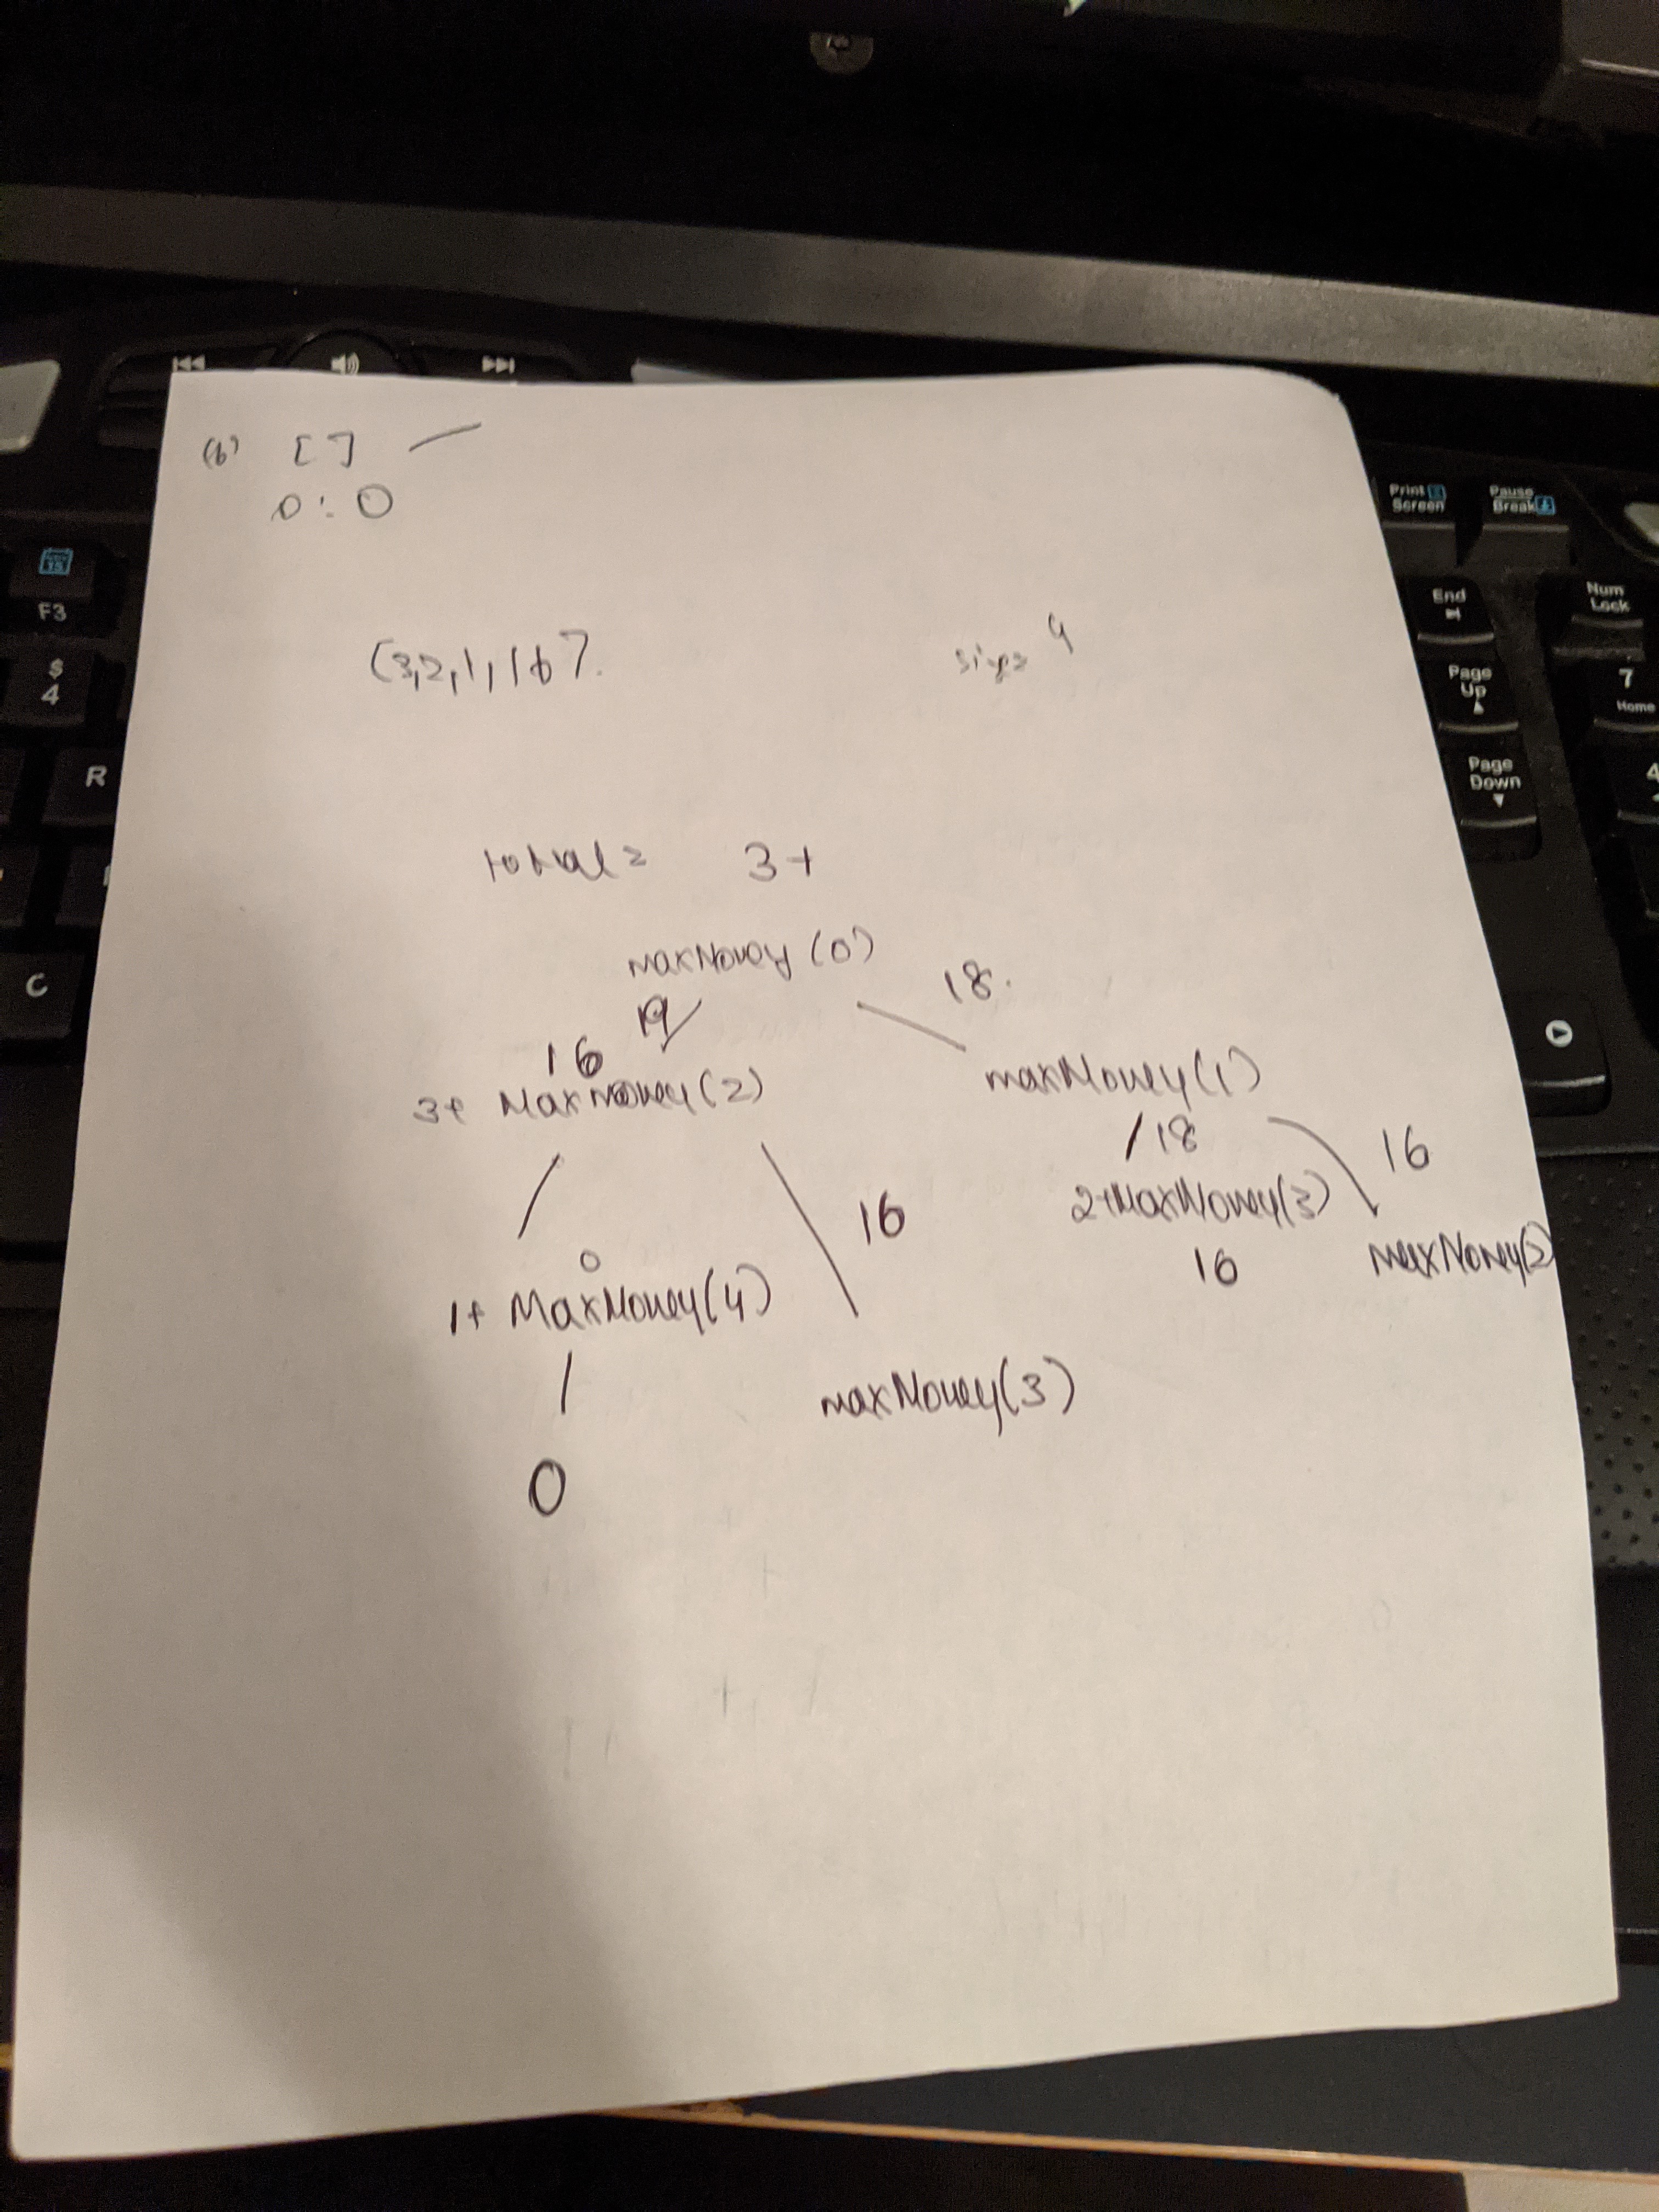 (b) [ ]
0 : 0
[3,2,1,16].
size 4
total = 3+
maxMoney (0)
19
18.
16
3+ MaxMoney(2)
maxMoney(1)
18
16
2+MaxMoney(3)
16
16
maxMoney(2)
0
1+ MaxMoney(4)
maxMoney(3)
0
F3
$
4
R
C
Print
Screen
Pause
Break
End
Num
Lock
Page
Up
7
Home
Page
Down
4